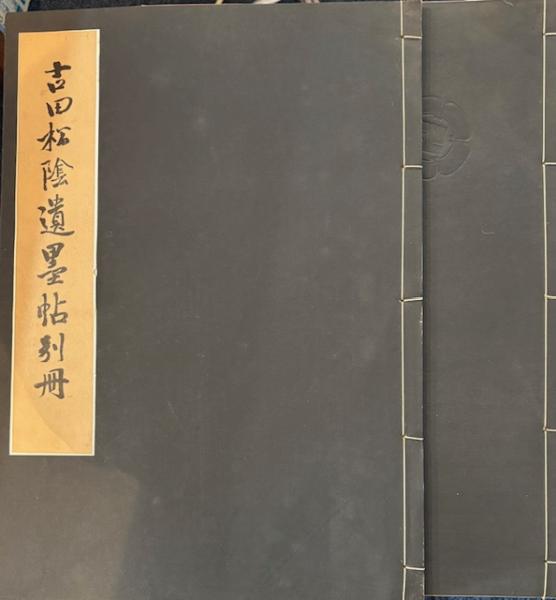 吉田松陰遺墨帖別冊